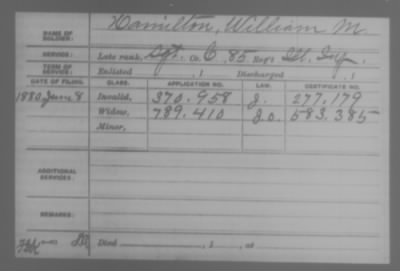 Hamilton, William M.
NAME OF SOLDIER:
SERVICE: Late rank, Sgt. Co. C, 85 Reg't Ill. Inf.
TERM OF SERVICE: Enlisted , 1 Discharged , 1
DATE OF FILING. CLASS. APPLICATION NO. LAW. CERTIFICATE NO.
1880 June 8 Invalid, 370.958 J. 277.179
Widow, 789.410 J.O. 583.385
Minor,
ADDITIONAL SERVICES:
REMARKS:
Died , 1 , at